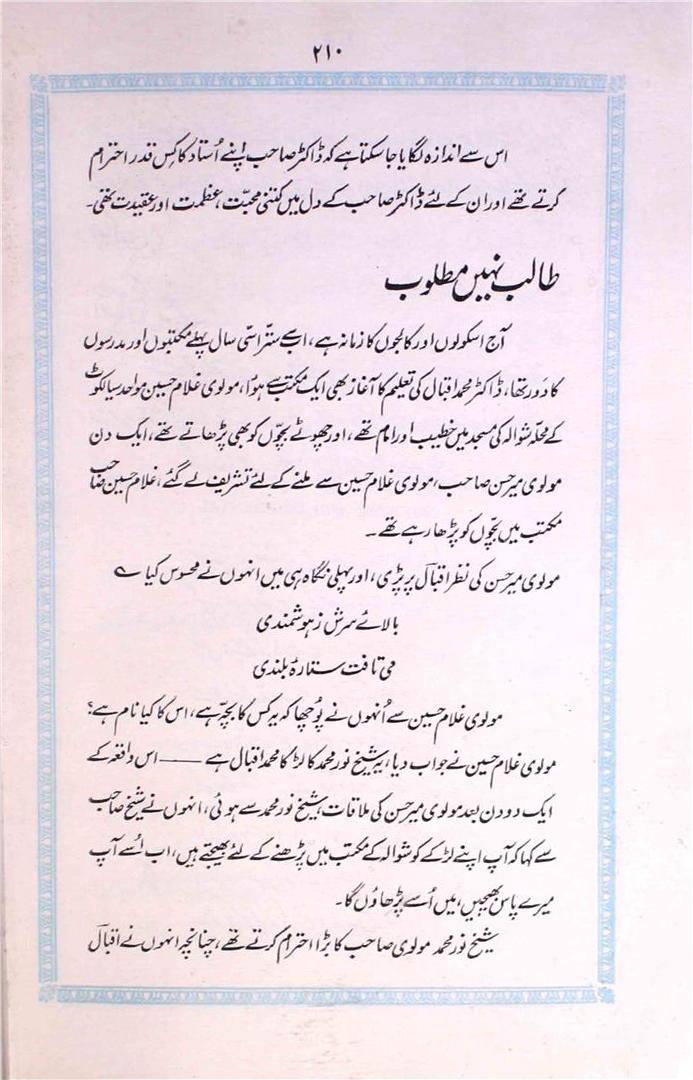 ۲۱۰
اس سے اندازہ لگایا جا سکتا ہے کہ ڈاکٹر صاحب اپنے اُستاد کا کِس قدر احترام
کرتے تھے اور ان کے لئے ڈاکٹر صاحب کے دل میں کتنی محبّت، عظمت اور عقیدت تھی۔
طالب نہیں مطلوب
آج اسکولوں اور کالجوں کا زمانہ ہے، اب سے ستّر اسّی سال پہلے مکتبوں اور مدرسوں
کا دَور تھا، ڈاکٹر محمد اقبال کی تعلیم کا آغاز بھی ایک مکتب سے ہوُا، مولوی غلام حسین مواحد سیالکوٹ
کے محلہ شوالہ کی مسجد میں خطیب اور امام تھے، اور چھوٹے بچّوں کو بھی پڑھاتے تھے، ایک دن
مولوی میر حسن صاحب، مولوی غلام حسین سے ملنے کے لئے تشریف لے گئے، غلام حسین صاحب
مکتب میں بچّوں کو پڑھا رہے تھے۔
مولوی میر حسن کی نظر اقبالؔ پر پڑی، اور پہلی نگاہ ہی میں انہوں نے محسوس کیا ؎
بالائے سرش ز ہوشمندی
می تافت ستارۂ بلندی
مولوی غلام حسین سے اُنہوں نے پوُچھا کہ یہ کس کا بچّہ ہے، اس کا کیا نام ہے؟
مولوی غلام حسین نے جواب دیا، یہ شیخ نور محمد کا لڑکا محمد اقبال ہے —— اس واقعہ کے
ایک دو دن بعد مولوی میر حسن کی ملاقات شیخ نور محمد سے ہوئی، انہوں نے شیخ صاحب
سے کہا کہ آپ اپنے لڑکے کو شوالہ کے مکتب میں پڑھنے کے لئے بھیجتے ہیں، اب اُسے آپ
میرے پاس بھیجیں، میں اُسے پڑھاؤں گا۔
شیخ نور محمد مولوی صاحب کا بڑا احترام کرتے تھے، چنانچہ انہوں نے اقبالؔ